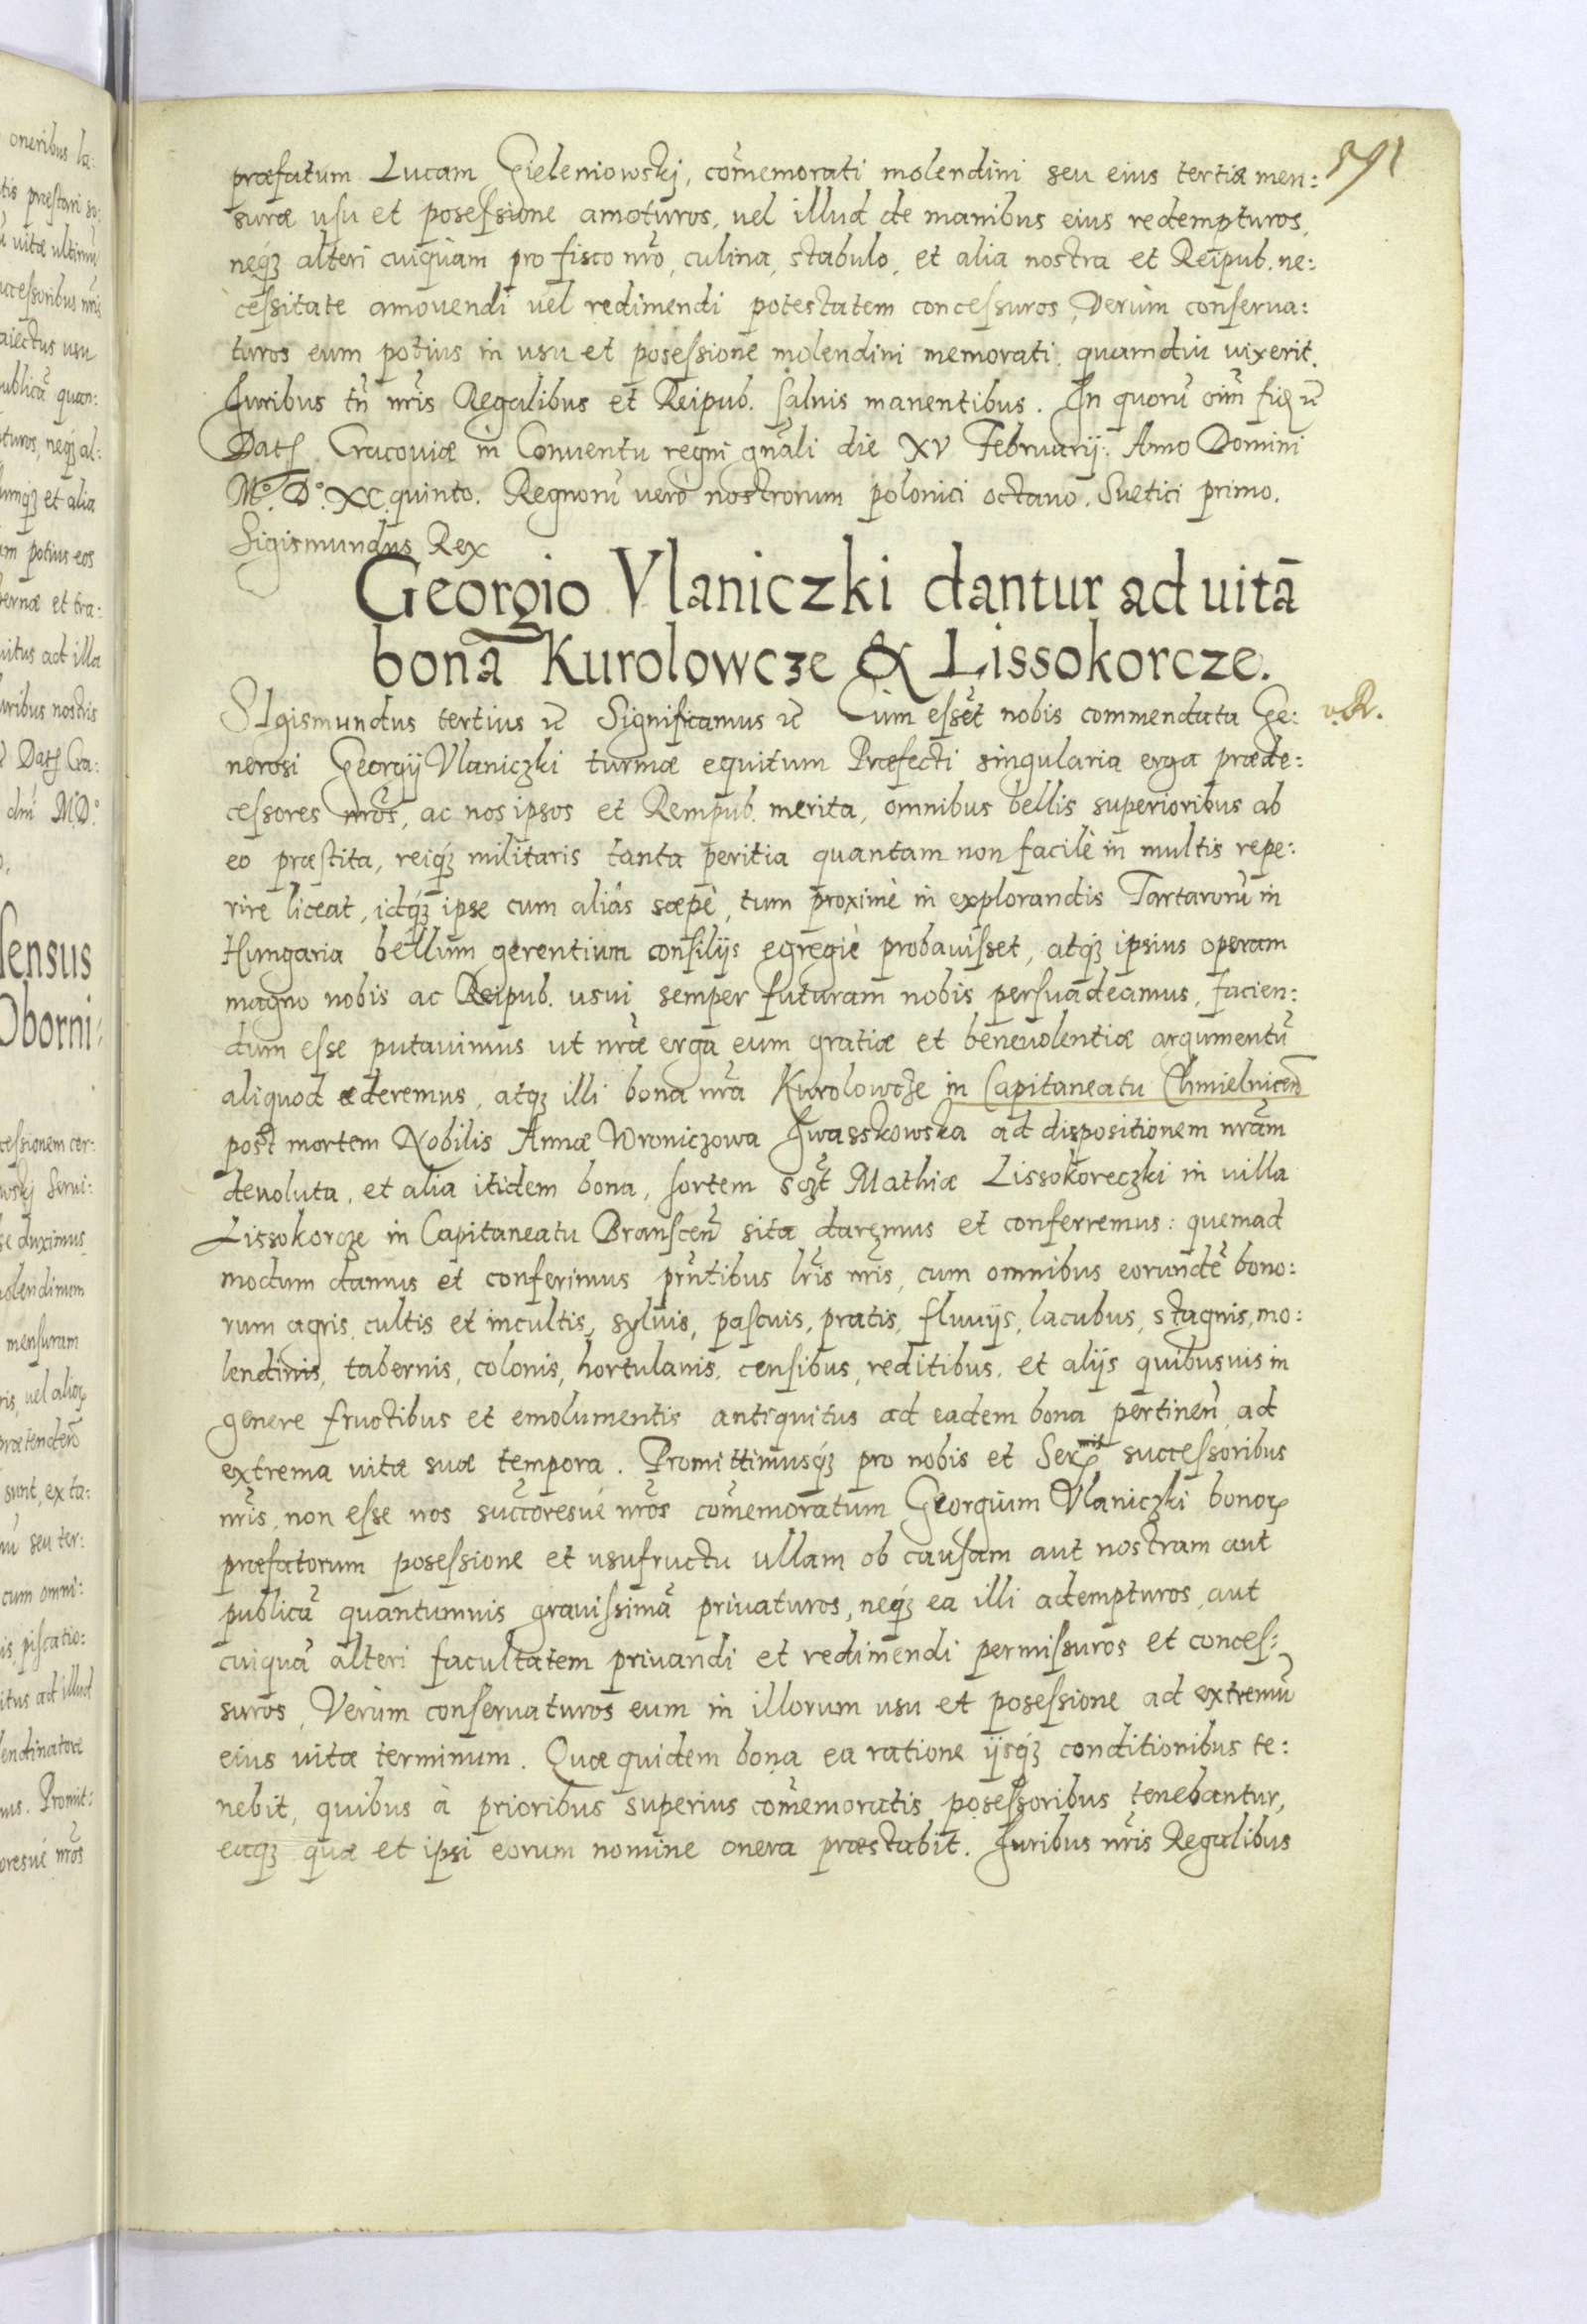 591
præfatum Lucam Gieleniowskj, com̃emorati molendini seu eius tertiæ men:
suræ usu et posessione amoturos, vel illud de manibus eius redempturos,
neq́ꝫ alteri cuiquàm pro fisco nr̃o, culina, stabulo, et alia nostra et Reipub. ne:
cessitate amovendi vel redimendi potestatem concessuros, Verùm conserua:
turos eum potius in usu et posessione molendini memorati quamdiu vixerit.
Juribus tñ nr̃is Regalibus et Reipub. saluis manentibus. In quorũ oĩm fid
Datꝭ Cracoviæ in Conuentu regni gñali die XV Februarij. Anno Domini
Mº. Dº. XC. quinto. Regnorũ verò nostrorum polonici octauo. Suetici primo.
Sigismundus Rex
Georgio Vlaniczki dantur ad uitã
bona Kurolowcze & Lissokorcze.
SIgismundus tertius ꝛc̃ Significamus ꝛc̃ Cùm esset nobis commendata Ge: v. R.
nerosi Georgij Vlaniczki turmæ equitum Præfecti singularia erga præde:
cessores nr̃os, ac nos ipsos et Rempub. merita, omnibus bellis superioribus ab
eo præstita, reiq́ꝫ militaris tanta peritia quantam non facilè in multis repe:
rire liceat, idq́ꝫ ipse cum aliàs sæpè, tum proximè in explorandis Tartarorũ in
Hungaria bellum gerentium consilijs egregiè probauisset, atq́ꝫ ipsius operam
magno nobis ac Reipub. usui semper futuram nobis persuadeamus, facien:
dum esse putavimus ut nr̃æ erga eum gratiæ et beneuolentiæ argumentũ
aliquod æderemus, atqꝫ illi bona nr̃a Kurolowcze in Capitaneatu Chmielniceñ
post mortem Nobilis Annæ Wroniczowa Jwasskowska ad dispositionem nr̃am
deuoluta, et alia itidem bona, sortem sczt̃ Mathiæ Lissokoreczki in villa
Lissokorcze in Capitaneatu Branscen̄ sita daremus et conferremus: quemad
modum damus et conferimus pr̃ntibus lr̃is nr̃is, cum omnibus eorundẽ bono:
rum agris cultis et incultis, syluis, pascuis, pratis, fluuijs, lacubus, stagnis, mo:
lendinis, tabernis, colonis, hortulanis, censibus, reditibus, et alijs quibusuis in
genere fructibus et emolumentis antiquitus ad eadem bona pertineñ ad
extrema vitæ suæ tempora. Promittimusq́ꝫ pro nobis et Serꝫmis successoribus
nr̃is, non esse nos succ̃oresué nr̃os com̃emoratum Georgium Vlaniczki bonoꝝ
præfatorum posessione et usufructu ullam ob causam aut nostram aut
publicã quantumuis grauissimã priuaturos, neq́ꝫ ea illi adempturos, aut
cuiquã alteri facultatem priuandi et redimendi permissuros et conces:
suros, Verùm conseruaturos eum in illorum usu et posessione ad extremũ
eius vitæ terminum. Quæ quidem bona ea ratione ijsq́ꝫ conditionibus te:
nebit, quibus à prioribus superius com̃emoratis posessoribus tenebantur,
eaqꝫ quæ et ipsi eorum nomine onera præstabit. Juribus nr̃is Regalibus